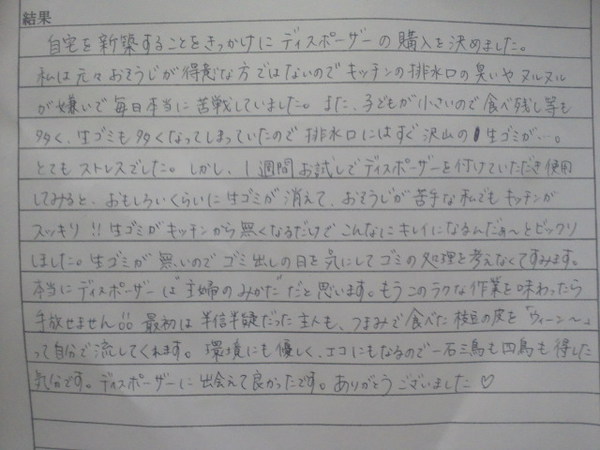 結果
自宅を新築することをきっかけに ディスポーザーの購入を決めました。
私は元々おそうじが得意な方ではないので キッチンの排水口の臭いや ヌルヌル
が嫌いで毎日本当に苦戦していました。また、子どもが小さいので食べ残し等も
多く、生ゴミも多くなってしまっていたので 排水口にはすぐ沢山の生ゴミが…。
とてもストレスでした。しかし、1週間お試しでディスポーザーを付けていただき使用
してみると、おもしろいくらいに生ゴミが消えて、おそうじが苦手な私でもキッチンが
スッキリ!! 生ゴミがキッチンから無くなるだけで こんなにキレイになるんだぁ〜とビックリ
しました。生ゴミが無いので ゴミ出しの日を気にしてゴミの処理を考えなくてすみます。
本当にディスポーザーは"主婦のみかた"だと思います。もうこのラクな作業を味わったら
手放せません!! 最初は半信半疑だった主人も、つまみで食べた枝豆の皮を「ウィーン〜」
って自分で流してくれます。環境にも優しく、エコにもなるので一石三鳥も四鳥も得した
気分です。ディスポーザーに出会えて良かったです。ありがとうございました♡